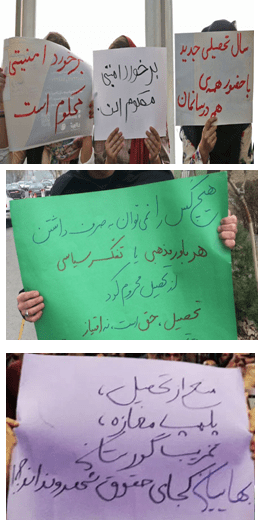 سال تحصیلی جدید
با حضور همه‌ی
هم درسانمان
برخورد امنیتی
محکوم است.
برخورد امنیتی
محکوم است
هیچ کس را نمی‌توان به صرف داشتن
هر باور مذهبی یا تفکر سیاسی
از تحصیل محروم کرد
تحصیل، حق است، نه امتیاز
منع از تحصیل،
پلمپ مغازه،
تخریب گورستان
بهاییان کجای حقوق